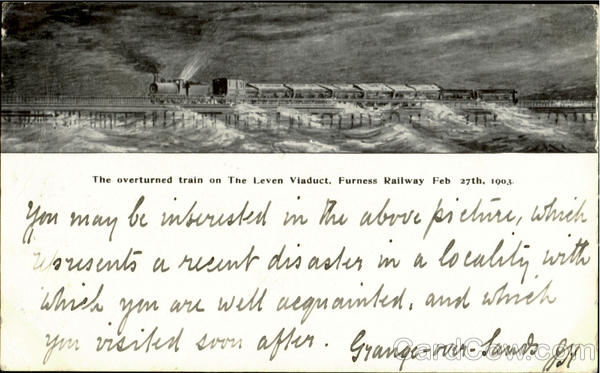 The overturned train on The Leven Viaduct. Furness Railway Feb 27th, 1903.
You may be interested in the above picture, which
represents a recent disaster in a locality with
which you are well acquainted, and which
you visited soon after. Grange-over-Sands
CardCow.com